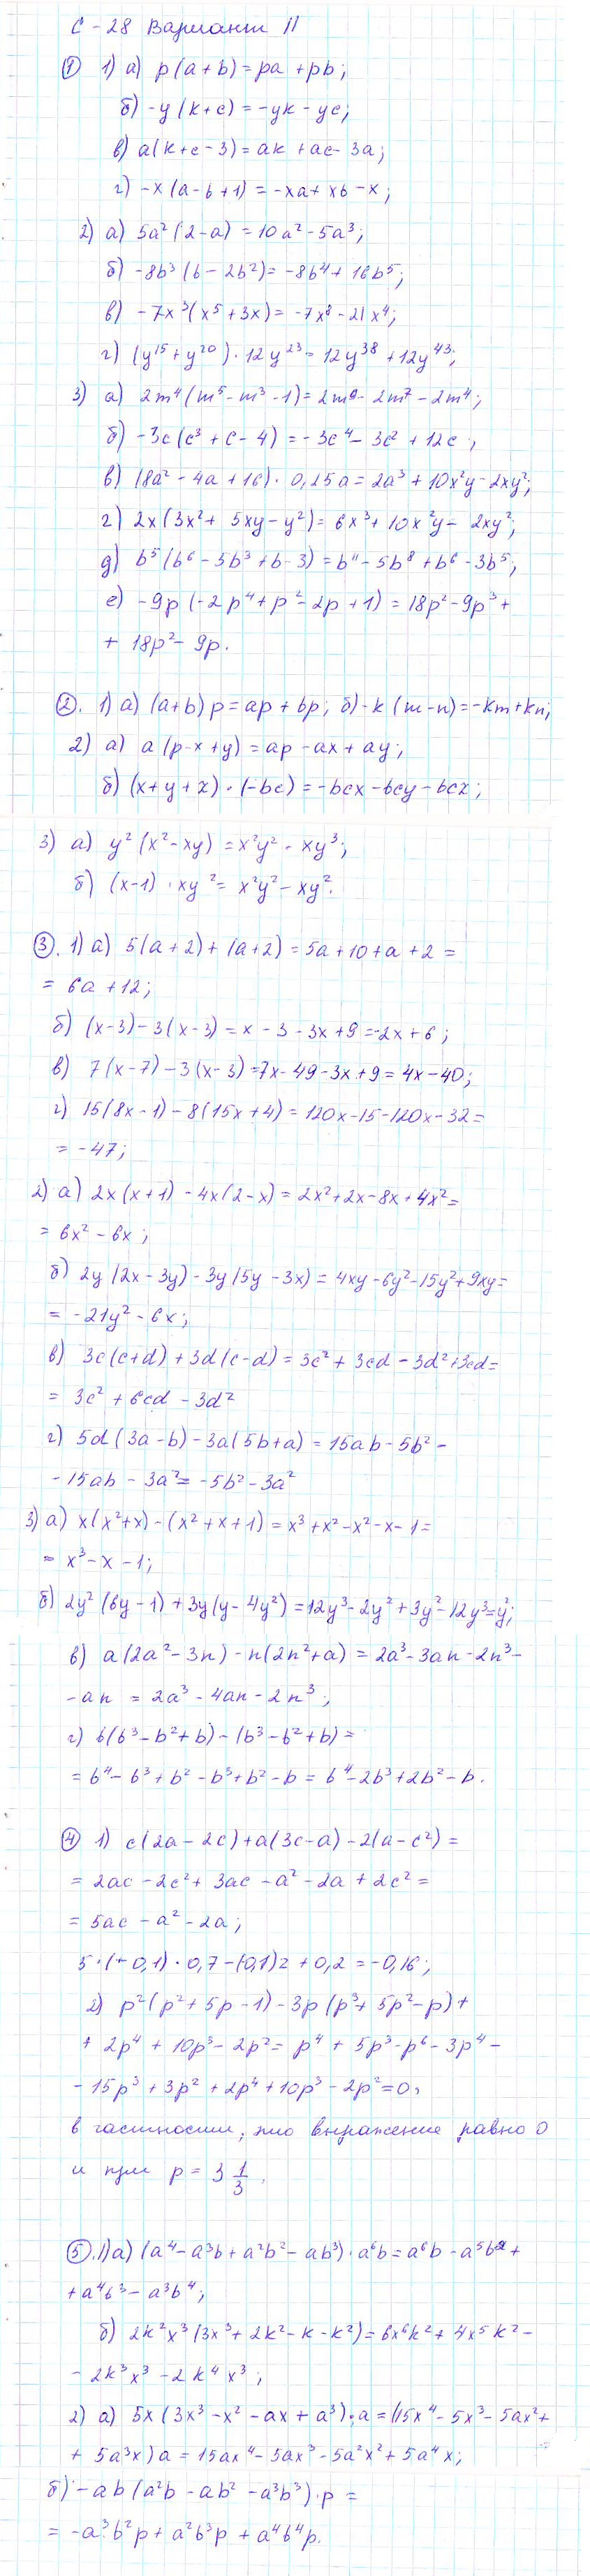 С-28 Вариант II
① 1) а) p(a+b) = pa + pb;
б) -y(k+c) = -yk - yc;
в) a(k+c-3) = ak + ac - 3a;
г) -x(a-b+1) = -xa + xb - x;
2) а) 5a²(2-a) = 10a² - 5a³;
б) -8b³(b - 2b²) = -8b⁴ + 16b⁵;
в) -7x³(x⁵+3x) = -7x⁸ - 21x⁴;
г) (y¹⁵ + y²⁰) · 12y²³ = 12y³⁸ + 12y⁴³;
3) а) 2m⁴(m⁵ - m³ - 1) = 2m⁹ - 2m⁷ - 2m⁴;
б) -3c(c³ + c - 4) = -3c⁴ - 3c² + 12c;
в) (8a² - 4a + 16) · 0,25a = 2a³ + 10x²y - 2xy²;
г) 2x(3x² + 5xy - y²) = 6x³ + 10x²y - 2xy²;
д) b⁵(b⁶ - 5b³ + b - 3) = b¹¹ - 5b⁸ + b⁶ - 3b⁵;
е) -9p(-2p⁴ + p² - 2p + 1) = 18p² - 9p³ +
+ 18p² - 9p.
②. 1) а) (a+b)p = ap + bp; б) -k(m-n) = -km + kn;
2) а) a(p-x+y) = ap - ax + ay;
б) (x+y+z) · (-bc) = -bcx - bcy - bcz;
3) а) y²(x² - xy) = x²y² - xy³;
б) (x-1) · xy² = x²y² - xy².
③. 1) а) 5(a+2) + (a+2) = 5a + 10 + a + 2 =
= 6a + 12;
б) (x-3) - 3(x-3) = x - 3 - 3x + 9 = -2x + 6;
в) 7(x-7) - 3(x-3) = 7x - 49 - 3x + 9 = 4x - 40;
г) 15(8x-1) - 8(15x+4) = 120x - 15 - 120x - 32 =
= -47;
2) а) 2x(x+1) - 4x(2-x) = 2x² + 2x - 8x + 4x² =
= 6x² - 6x;
б) 2y(2x - 3y) - 3y(5y - 3x) = 4xy - 6y² - 15y² + 9xy =
= -21y² - 6x;
в) 3c(c+d) + 3d(c-d) = 3c² + 3cd - 3d² + 3cd =
= 3c² + 6cd - 3d²
г) 5d(3a-b) - 3a(5b+a) = 15ab - 5b² -
- 15ab - 3a² = -5b² - 3a²
3) а) x(x²+x) - (x² + x + 1) = x³ + x² - x² - x - 1 =
= x³ - x - 1;
б) 2y²(6y-1) + 3y(y - 4y²) = 12y³ - 2y² + 3y² - 12y³ = y²;
в) a(2a² - 3n) - n(2n² + a) = 2a³ - 3an - 2n³ -
- an = 2a³ - 4an - 2n³;
г) b(b³ - b² + b) - (b³ - b² + b) =
= b⁴ - b³ + b² - b³ + b² - b = b⁴ - 2b³ + 2b² - b.
④ 1) c(2a - 2c) + a(3c - a) - 2(a - c²) =
= 2ac - 2c² + 3ac - a² - 2a + 2c² =
= 5ac - a² - 2a;
5 · (-0,1) · 0,7 - (0,1)2 + 0,2 = -0,16;
2) p²(p² + 5p - 1) - 3p(p³ + 5p² - p) +
+ 2p⁴ + 10p³ - 2p² = p⁴ + 5p³ - p⁶ - 3p⁴ -
- 15p³ + 3p² + 2p⁴ + 10p³ - 2p² = 0,
в частности, это выражение равно 0
и при p = 3 1/3.
⑤. 1) а) (a⁴ - a³b + a²b² - ab³) · a⁶b = a⁶b - a⁵b² +
+ a⁴b³ - a³b⁴;
б) 2k²x³(3x³ + 2k² - k - k²) = 6x⁶k² + 4x⁵k² -
- 2k³x³ - 2k⁴x³;
2) а) 5x(3x³ - x² - ax + a³) · a = (15x⁴ - 5x³ - 5ax² +
+ 5a³x)a = 15ax⁴ - 5ax³ - 5a²x² + 5a⁴x;
б) -ab(a²b - ab² - a³b³) · p =
= -a³b²p + a²b³p + a⁴b⁴p.